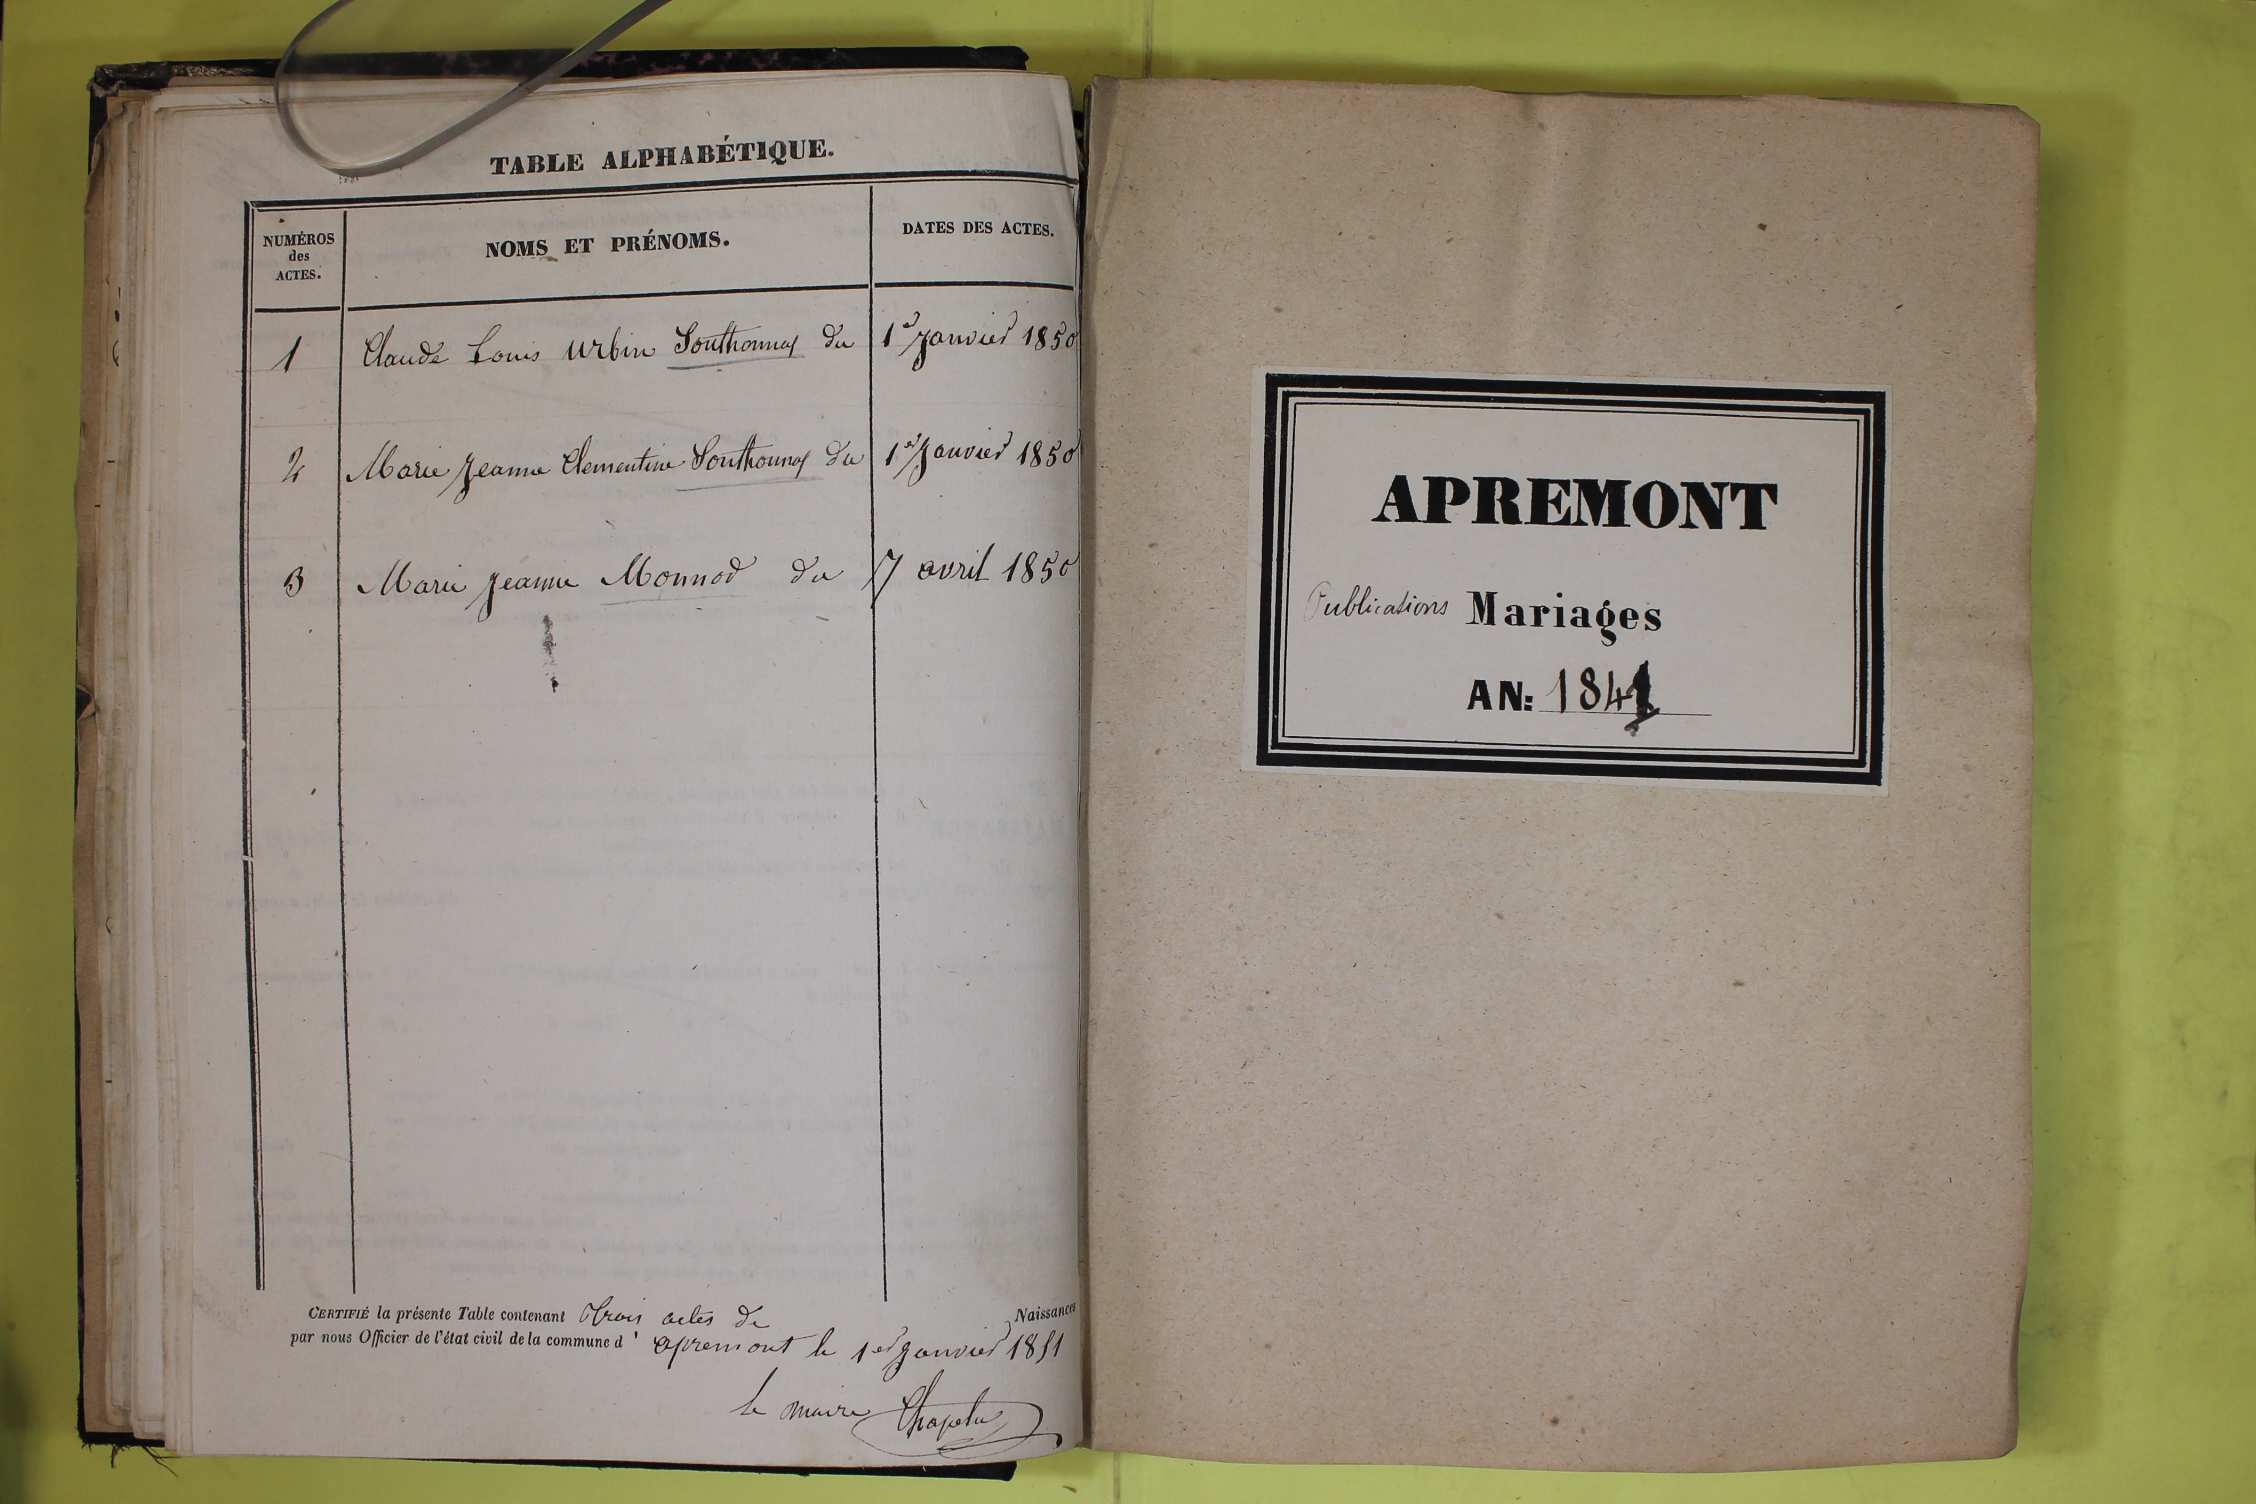 TABLE ALPHABÉTIQUE.
NUMÉROS
des
ACTES.
NOMS ET PRÉNOMS.
DATES DES ACTES.
1 Claude Louis Urbin Southonnax du 1er Janvier 1850
2 Marie Jeanne Clementine Southonnax du 1er Janvier 1850
3 Marie Jeanne Monnod du 7 avril 1850
CERTIFIÉ la présente Table contenant trois actes de Naissances
par nous Officier de l'état civil de la commune d' apremont le 1er Janvier 1851
Le maire Chapelu
APREMONT
Publications Mariages
AN: 184